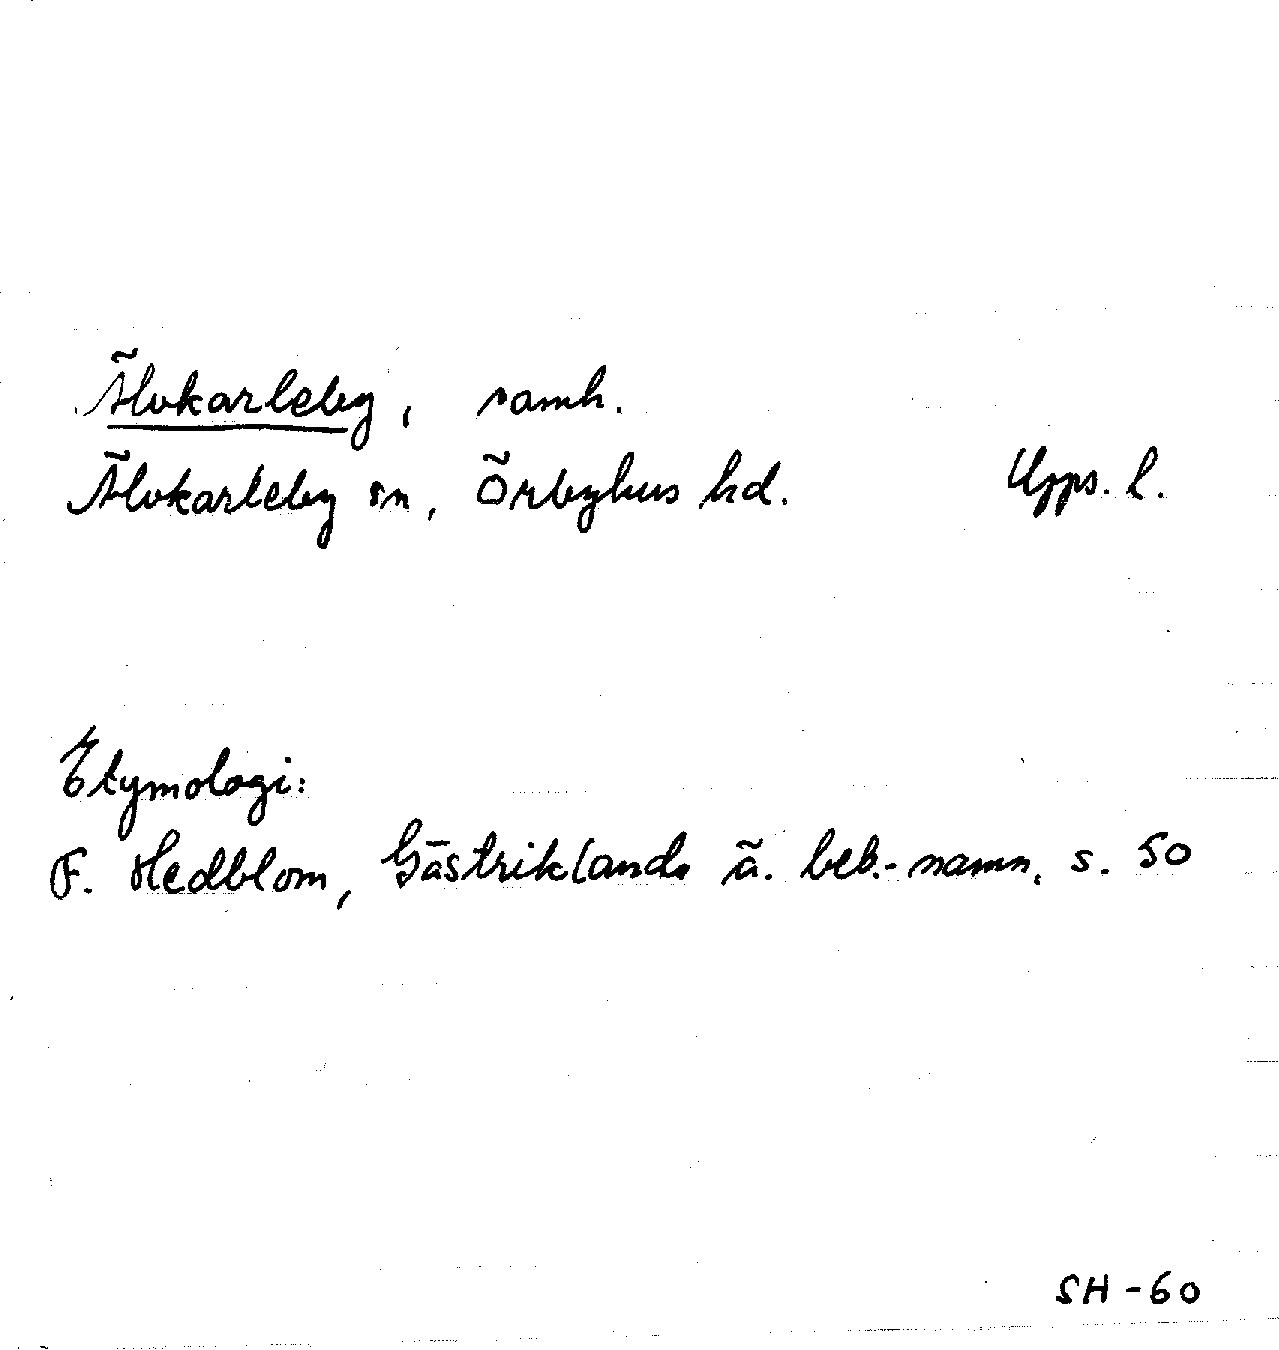 Älvkarleby, samh.
Älvkarleby sn, Örbyhus hd. Upps. l.
Etymologi:
F. Hedblom, Gästriklands ä. beb.-namn, s. 50
SH-60